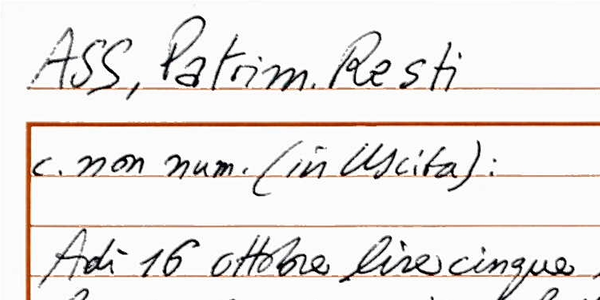 ASS, Patrim. Resti
c. non num. (in Uscita):
Adì 16 ottobre lire cinque